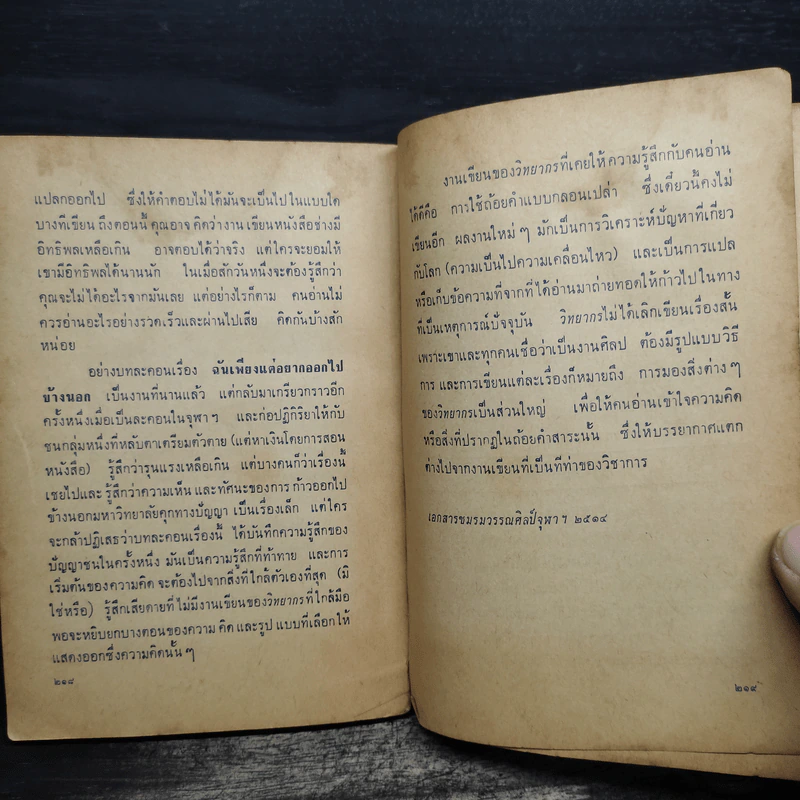 แปลกออกไป ซึ่งให้คำตอบไม่ได้มันจะเป็นไปในแบบใด
บางทีเขียน ถึงตอนนี้ คุณอาจ คิดว่างาน เขียนหนังสือช่างมี
อิทธิพลเหลือเกิน อาจตอบได้ว่าจริง แต่ใครจะยอมให้
เขามีอิทธิพลได้นานนัก ในเมื่อสักวันหนึ่งจะต้องรู้สึกว่า
คุณจะไม่ได้อะไรจากมันเลย แต่อย่างไรก็ตาม คนอ่านไม่
ควรอ่านอะไรอย่างรวดเร็วและผ่านไปเสีย คิดกันบ้างสัก
หน่อย
อย่างบทละคอนเรื่อง ฉันเพียงแต่อยากออกไป
ข้างนอก เป็นงานที่นานแล้ว แต่กลับมาเกรียวกราวอีก
ครั้งหนึ่งเมื่อเป็นละคอนในจุฬา ฯ และก่อปฏิกิริยาให้กับ
ชนกลุ่มหนึ่งที่หลับตาเตรียมตัวตาย (แต่หาเงินโดยการสอน
หนังสือ) รู้สึกว่ารุนแรงเหลือเกิน แต่บางคนก็ว่าเรื่องนี้
เชยไปและ รู้สึกว่าความเห็น และทัศนะของการ ก้าวออกไป
ข้างนอกมหาวิทยาลัยคุกทางปัญญา เป็นเรื่องเล็ก แต่ใคร
จะกล้าปฏิเสธว่าบทละคอนเรื่องนี้ ได้บันทึกความรู้สึกของ
ปัญญาชนในครั้งหนึ่ง มันเป็นความรู้สึกที่ท้าทาย และการ
เริ่มต้นของความคิด จะต้องไปจากสิ่งที่ใกล้ตัวเองที่สุด (มิ
ใช่หรือ) รู้สึกเสียดายที่ ไม่มีงานเขียนของวิทยากรที่ใกล้มือ
พอจะหยิบยกบางตอนของความ คิด และรูป แบบที่เลือกให้
แสดงออกซึ่งความคิดนั้น ๆ
๒๑๘
งานเขียนของวิทยากรที่เคยให้ ความรู้สึกกับคนอ่าน
ได้ดีคือ การใช้ถ้อยคำแบบกลอนเปล่า ซึ่งเดี๋ยวนี้คงไม่
เขียนอีก ผลงานใหม่ ๆ มักเป็นการวิเคราะห์ปัญหาที่เกี่ยว
กับโลก (ความเป็นไปความเคลื่อนไหว) และเป็นการแปล
หรือเก็บข้อความที่จากที่ได้อ่านมาถ่ายทอดให้ก้าวไปในทาง
ที่เป็นเหตุการณ์ปัจจุบัน วิทยากรไม่ได้เลิกเขียนเรื่องสั้น
เพราะเขาและทุกคนเชื่อว่าเป็นงานศิลป ต้องมีรูปแบบวิธี
การ และการเขียนแต่ละเรื่องก็หมายถึง การมองสิ่งต่าง ๆ
ของวิทยากรเป็นส่วนใหญ่ เพื่อให้คนอ่านเข้าใจความคิด
หรือสิ่งที่ปรากฏในถ้อยคำสาระนั้น ซึ่งให้บรรยากาศแตก
ต่างไปจากงานเขียนที่เป็นทีท่าของวิชาการ
เอกสารชมรมวรรณศิลป์จุฬา ฯ ๒๕๑๔
๒๑๙